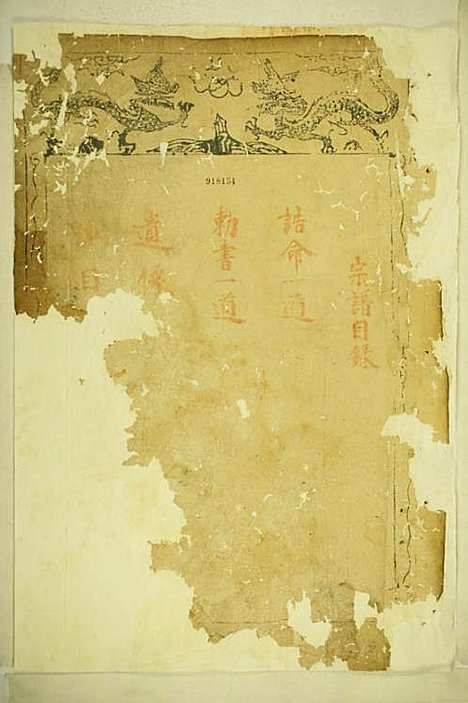 918154
宗譜目錄
誥命一道
勅書一道
遺像